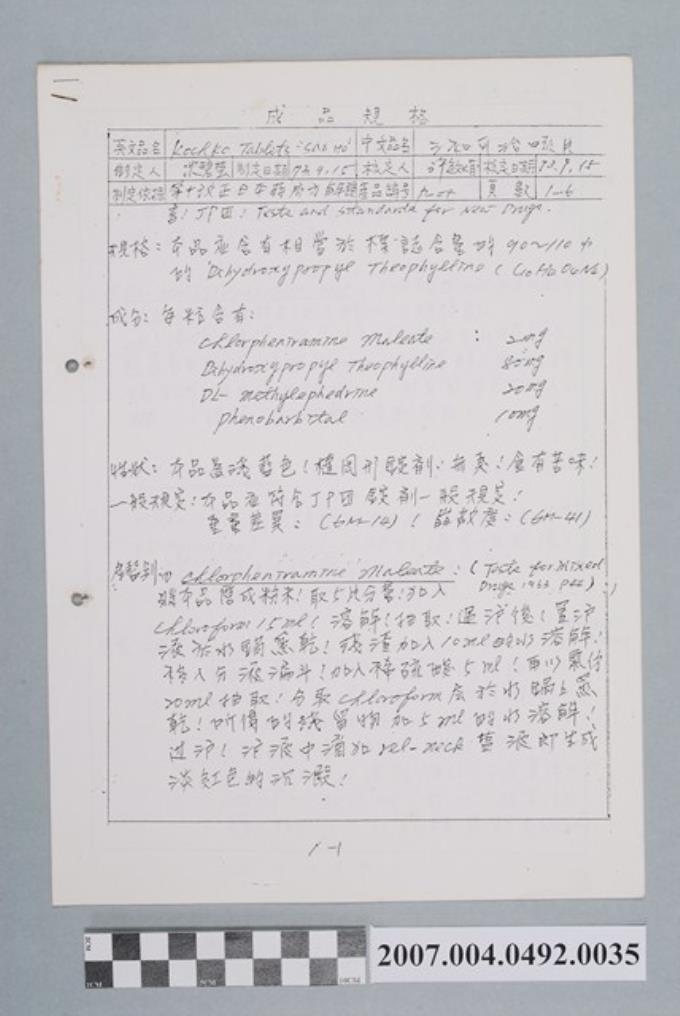 成品規格
英文品名 Kochko Tablets 中文品名
制定人 制定日期 73.9.15 核定人 核定日期 73.9.15
制定依據 產品編號 頁數 1-6
JP Ⅷ Tests and standards for New Drugs.
規格:本品應含有相當於標誌含量的90~110%
的 Dihydroxypropyl Theophylline
成分:每粒含有:
Chlorpheniramine Maleate : 2mg
Dihydroxypropyl Theophylline 80mg
DL-methylephedrine 20mg
Phenobarbital 10mg
性狀:本品為淺藍色!橢圓形錠劑.無臭!含有苦味!
一般規定:本品應符合JPⅧ錠劑一般規定!
重量差異:(GM-14)!崩散度:(GM-41)
鑑別 (1) Chlorpheniramine Maleate:(Tests for Mixed
Drugs 1963 P44)
將本品磨成粉末!取5片分量!加入
Chloroform 15ml!溶解!抽取!過沪後!置沪
液於水鍋蒸乾!殘渣加入10ml的水溶解!
移入分液漏斗!加入稀硫酸5ml!再以氯仿
20ml抽取!分取Chloroform層於水鍋上蒸
乾!所得的殘留物加5ml的水溶解!
过沪!沪液中滴加 試液即生成
淡紅色的沉澱!
1-1
2007.004.0492.0035